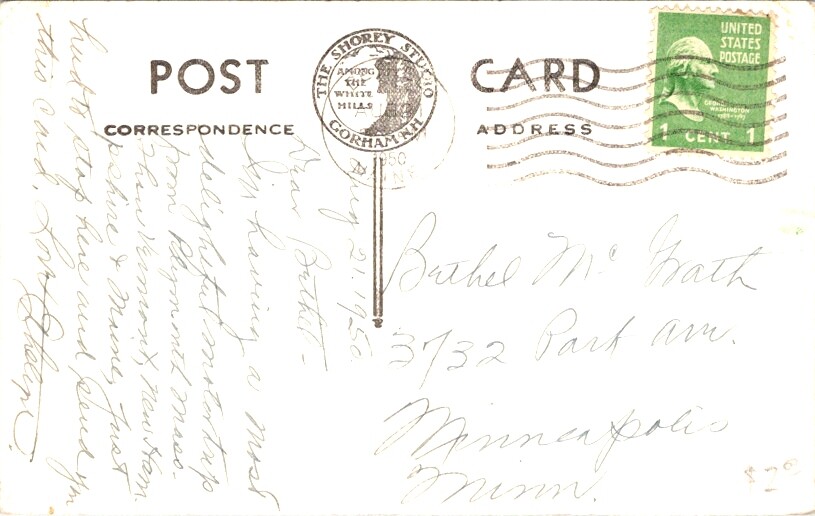 POST CARD
THE SHOREY STUDIO
AMONG
THE
WHITE
HILLS
GORHAM N.H.
CORRESPONDENCE
ADDRESS
UNITED
STATES
POSTAGE
GEORGE
WASHINGTON
1 CENT 1
1950
MINN
Aug 21, 1950
Dear Bethel -
I'm having a most
delightful motor trip
from Plymouth Mass.
thru Vermont, New Ham
pshire & Maine, Just
had to stop here and send you
this card. Love
Bethel McGrath
3732 Park Av.
Minneapolis
Minn.